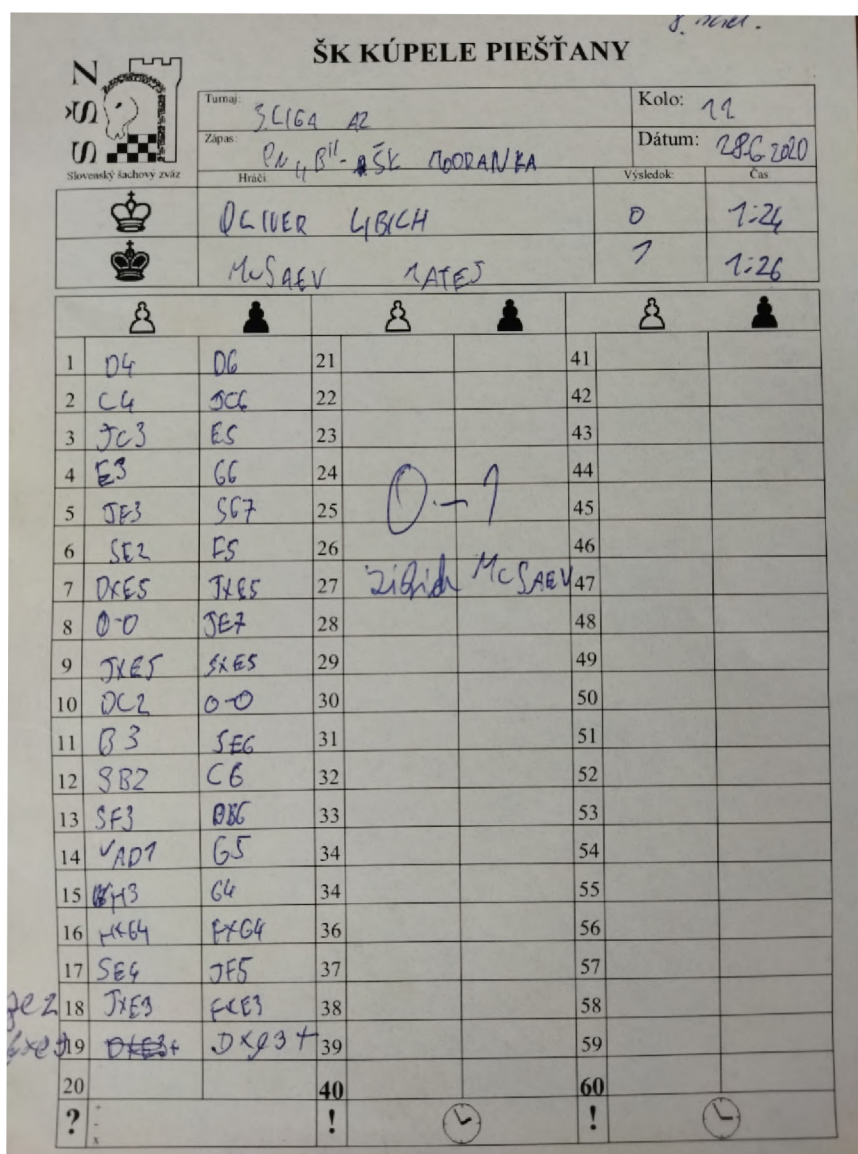 8.
ŠK KÚPELE PIEŠŤANY
SŠZ
Slovenský šachový zväz
Turnaj: 3.LIGA A2
Kolo: 11
Zápas: PN "B" - ŠK MODRANKA
Dátum: 28.6.2020
Hráči: Výsledok: Čas
OLIVER LIBICH 0 1:24
MUSAEV MATEJ 1 1:26
1 D4 D6 21 41
2 C4 JC6 22 42
3 JC3 E5 23 43
4 E3 G6 24 44
0-1
5 JF3 SG7 25 45
6 SE2 F5 26 46
7 DXE5 JXE5 27 47
8 0-0 JE7 28 48
9 JXE5 SXE5 29 49
10 DC2 0-0 30 50
11 B3 SE6 31 51
12 SB2 C6 32 52
13 SF3 33 53
14 VAD1 G5 34 54
15 H3 G4 34 55
16 HXG4 FXG4 36 56
17 SE4 JF5 37 57
18 JXE3 38 58
19 DXE3+ DXe3+ 39 59
20 40 60
? + - x ! !